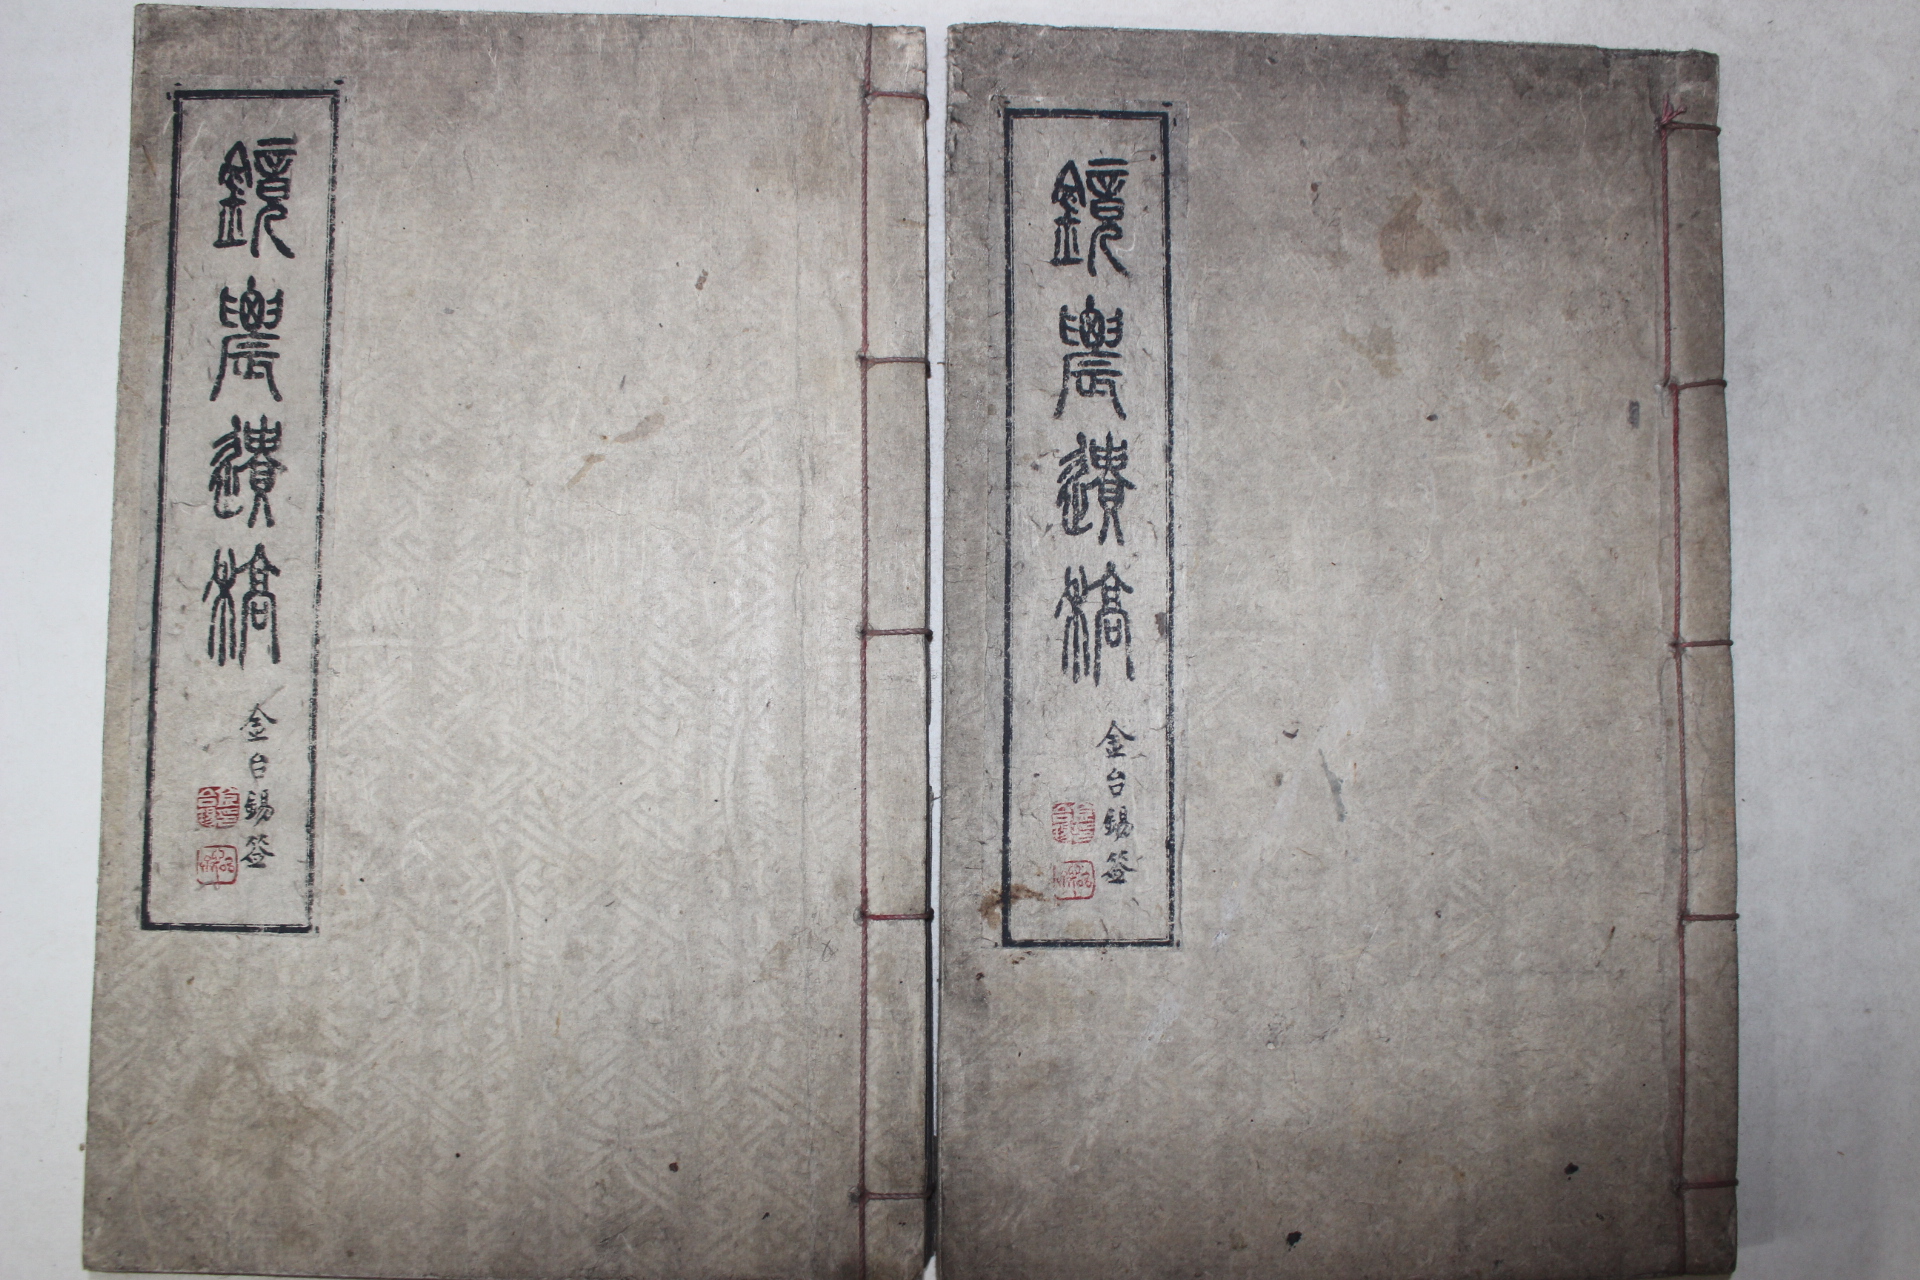 鏡農遺稿
金台錫签
鏡農遺稿
金台錫签